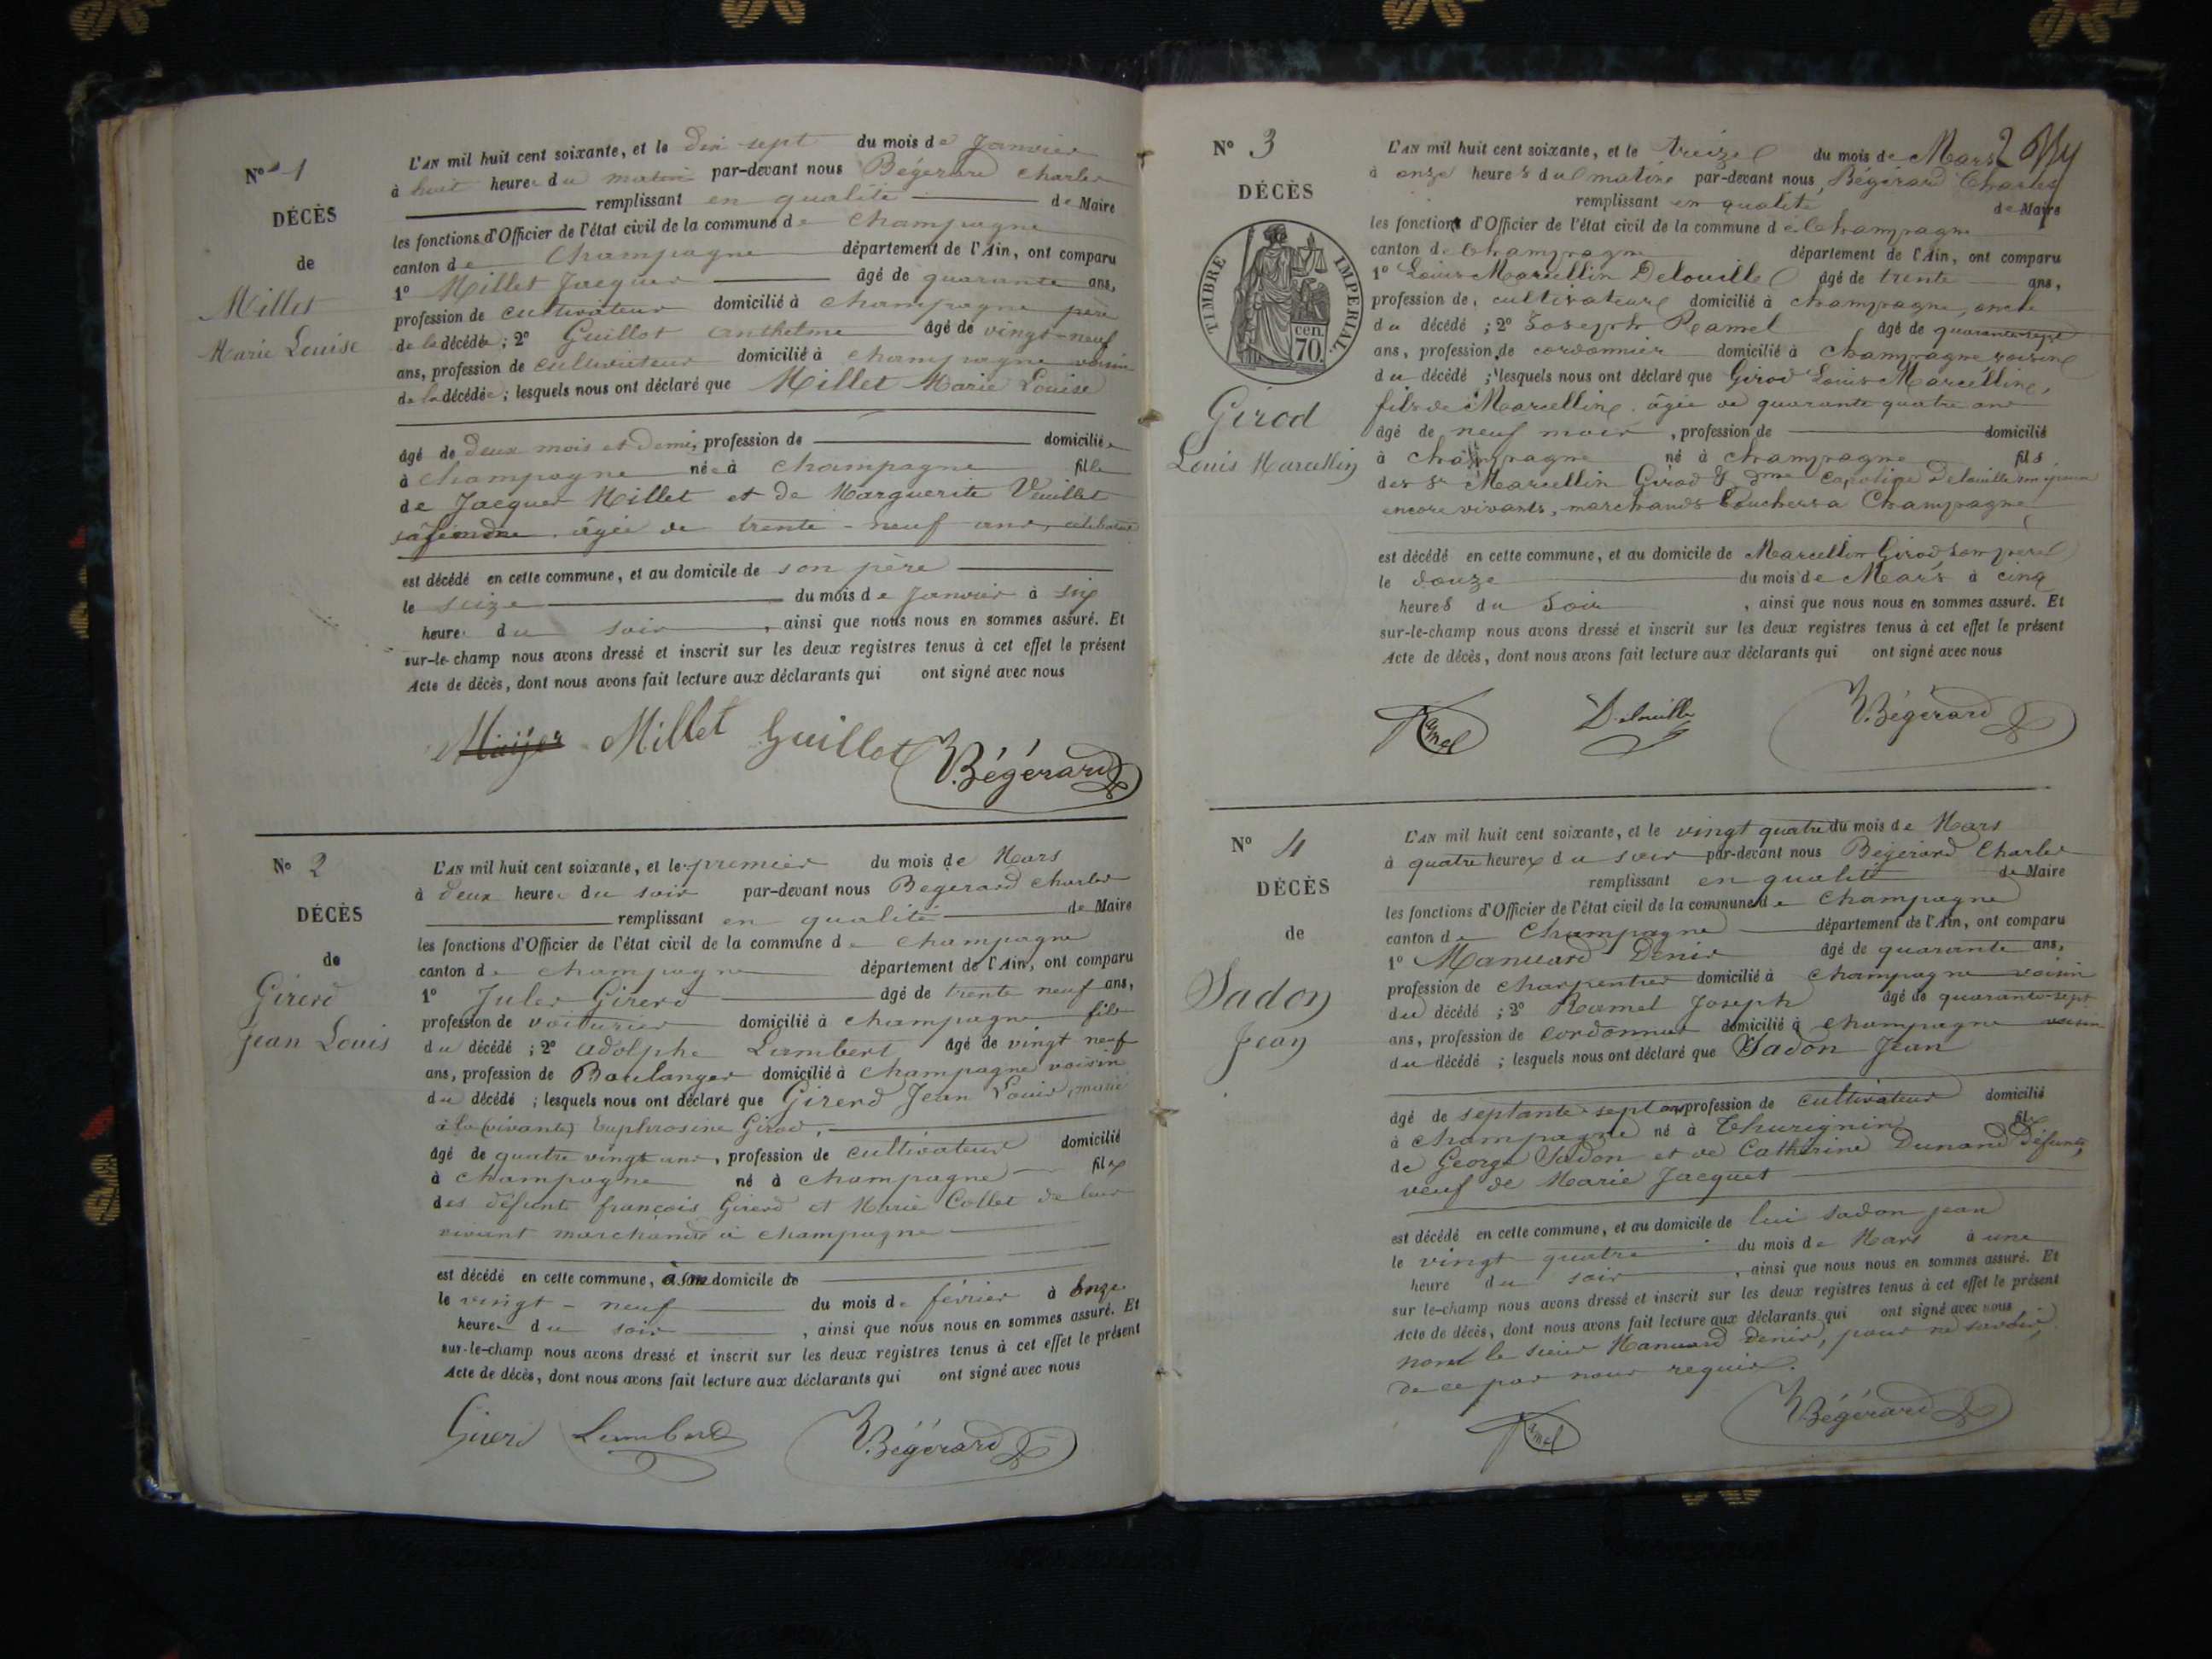 N° 1
DÉCÈS
de
Millet
Marie Louise
L'AN mil huit cent soixante, et le dix sept du mois de Janvier
à huit heures du matin par-devant nous Bégerard Charles
remplissant en qualité de Maire
les fonctions d'Officier de l'état civil de la commune de Champagne
canton de Champagne département de l'Ain, ont comparu
1° Millet Jacques âgé de quarante ans,
profession de cultivateur domicilié à Champagne père
de la décédée ; 2° Guillot anthelme âgé de vingt-neuf
ans, profession de cultivateur domicilié à Champagne voisin
de la décédée ; lesquels nous ont déclaré que Millet Marie Louise
âgé de deux mois et demi, profession de domiciliée
à Champagne née à Champagne fille
de Jacques Millet et de Marguerite Vuillet
âgée de trente-neuf ans,
est décédé en cette commune, et au domicile de son père
le seize du mois de Janvier à six
heures du soir, ainsi que nous nous en sommes assuré. Et
sur-le-champ nous avons dressé et inscrit sur les deux registres tenus à cet effet le présent
Acte de décès, dont nous avons fait lecture aux déclarants qui ont signé avec nous
Millet Guillot Bégerard
N° 2
DÉCÈS
de
Girerd
Jean Louis
L'AN mil huit cent soixante, et le premier du mois de Mars
à deux heures du soir par-devant nous Begerard Charles
remplissant en qualité de Maire
les fonctions d'Officier de l'état civil de la commune de Champagne
canton de Champagne département de l'Ain, ont comparu
1° Jules Girerd âgé de trente neuf ans,
profession de voiturier domicilié à Champagne fils
du décédé ; 2° adolphe Lambert âgé de vingt neuf
ans, profession de Boulanger domicilié à Champagne voisin
du décédé ; lesquels nous ont déclaré que Girerd Jean Louis, marié
à la (vivante) Euphrosine Girod,
âgé de quatre vingt ans, profession de cultivateur domicilié
à Champagne né à Champagne fils
des défunts françois Girerd et Marie Collet de leur
vivant marchands à Champagne
est décédé en cette commune, à son domicile de
le vingt-neuf du mois de février à onze
heures du soir, ainsi que nous nous en sommes assuré. Et
sur-le-champ nous avons dressé et inscrit sur les deux registres tenus à cet effet le présent
Acte de décès, dont nous avons fait lecture aux déclarants qui ont signé avec nous
Girerd Lambert Bégérard
N° 3
DÉCÈS
TIMBRE IMPERIAL
cen. 70.
Girod
Louis Marcellin
L'AN mil huit cent soixante, et le treize du mois de Mars
à onze heures du matin par-devant nous Bégérard Charles
remplissant en qualité de Maire
les fonctions d'Officier de l'état civil de la commune de Champagne
canton de Champagne département de l'Ain, ont comparu
1° Louis Marcellin Delouille âgé de trente ans,
profession de, cultivateur domicilié à Champagne, oncle
du décédé ; 2° Joseph Ramel âgé de quarante sept
ans, profession de cordonnier domicilié à Champagne voisin
du décédé ; lesquels nous ont déclaré que Girod Louis Marcellin,
fils de Marcellin, âgée de quarante quatre ans
âgé de neuf mois, profession de domicilié
à Champagne né à Champagne fils
des Sr Marcellin Girod & Dme Caroline Delouille son épouse
encore vivants, marchands bouchers a Champagne
est décédé en cette commune, et au domicile de Marcellin Girod son père
le douze du mois de Mars à cinq
heures du soir, ainsi que nous nous en sommes assuré. Et
sur-le-champ nous avons dressé et inscrit sur les deux registres tenus à cet effet le présent
Acte de décès, dont nous avons fait lecture aux déclarants qui ont signé avec nous
Ramel Delouille Bégérard
N° 4
DÉCÈS
de
Sadon
Jean
L'AN mil huit cent soixante, et le vingt quatre du mois de Mars
à quatre heures du soir par-devant nous Bégérard Charles
remplissant en qualité de Maire
les fonctions d'Officier de l'état civil de la commune de Champagne
canton de Champagne département de l'Ain, ont comparu
1° Manuard Denis âgé de quarante ans,
profession de charpentier domicilié à Champagne voisin
du décédé ; 2° Ramel Joseph âgé de quarante-sept
ans, profession de cordonnier domicilié à Champagne voisin
du décédé ; lesquels nous ont déclaré que Sadon Jean
âgé de septante-sept ans profession de cultivateur domicilié
à Champagne né à Thurignin fils
de George Sadon et de Catherine Dunand défunts,
veuf de Marie Jacquet
est décédé en cette commune, et au domicile de lui Sadon Jean
le vingt quatre du mois de Mars à une
heure du soir, ainsi que nous nous en sommes assuré. Et
sur le-champ nous avons dressé et inscrit sur les deux registres tenus à cet effet le présent
Acte de décès, dont nous avons fait lecture aux déclarants qui ont signé avec nous
non le sieur Manuard Denis, pour ne savoir,
de ce par nous requis.
Ramel Bégérard